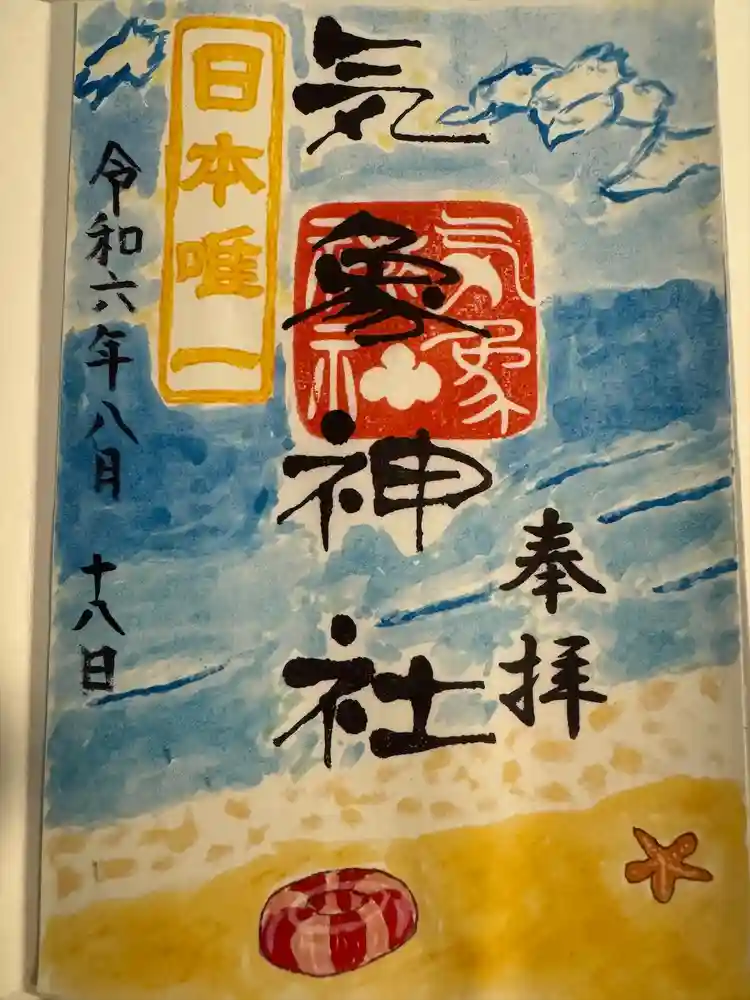 奉拝
気象神社
気象神社
日本唯一
令和六年八月十八日